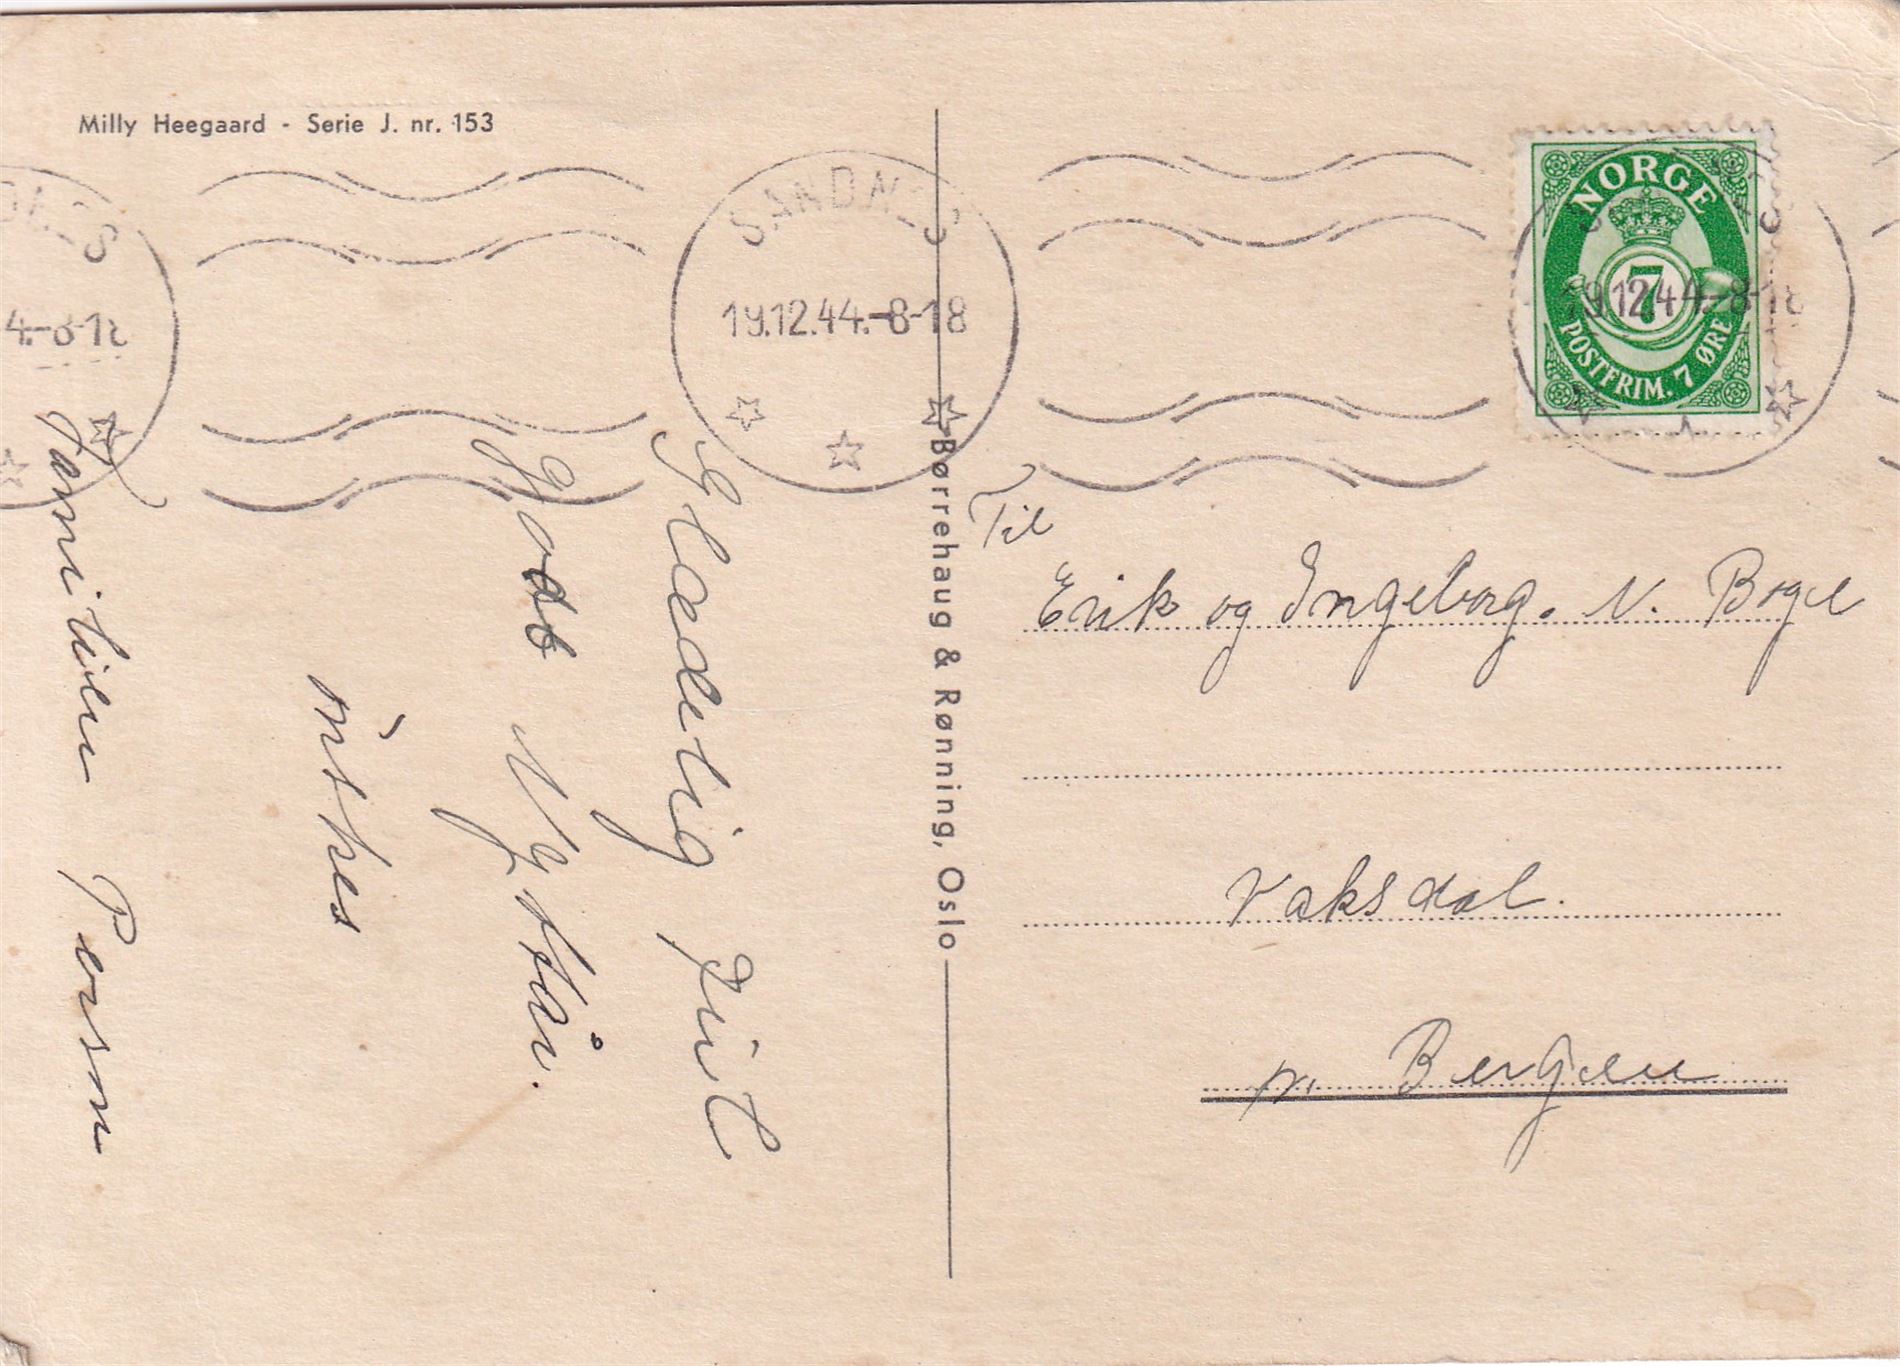 Milly Heegaard - Serie J. nr. 153
SANDNES
19.12.44.-8-18
NORGE
7
POSTFRIM. 7 ØRE
19.12.44.-8-18
4.-8-18
Børrehaug & Rønning, Oslo
Glædelig Jul
Godt Nyttår.
ønskes
Familien Person
Til
Erik og Ingeborg. N. Boge
Vaksdal.
pr. Bergen